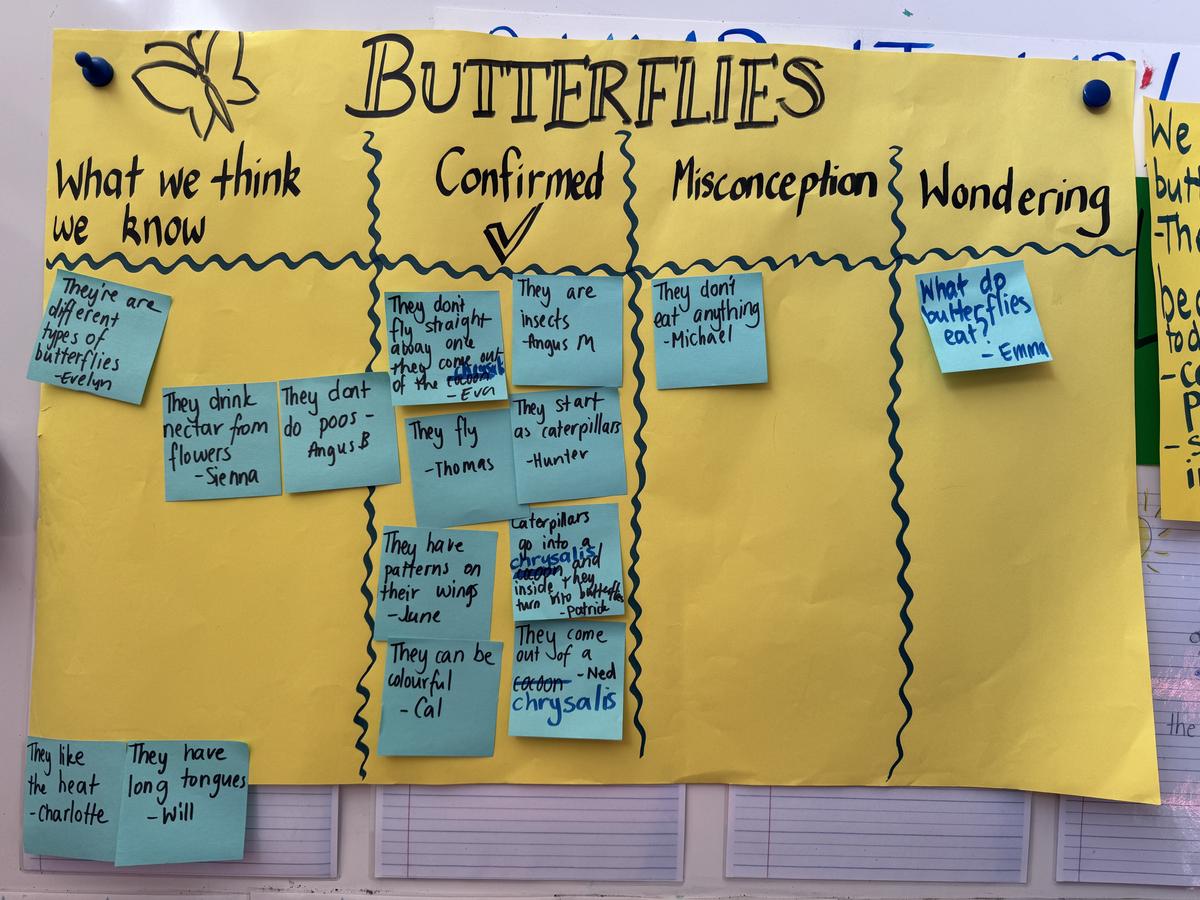 BUTTERFLIES
What we think
we know
Confirmed
Misconception
Wondering
They're are
different
types of
butterflies
-Evelyn
They drink
nectar from
flowers
-Sienna
They dont
do poos -
Angus B
They like
the heat
-Charlotte
They have
long tongues
-Will
They don't
fly straight
away once
they come out
of the cocoon chrysalis
- Eva
They are
insects
-Angus M
They fly
-Thomas
They start
as caterpillars
-Hunter
They have
patterns on
their wings
-June
Caterpillars
go into a
chrysalis
cocoon and
inside they
turn into butterflies
-Patrick
They can be
colourful
- Cal
They come
out of a
cocoon -Ned
chrysalis
They don't
eat anything
-Michael
What do
butterflies
eat?
- Emma
We
the